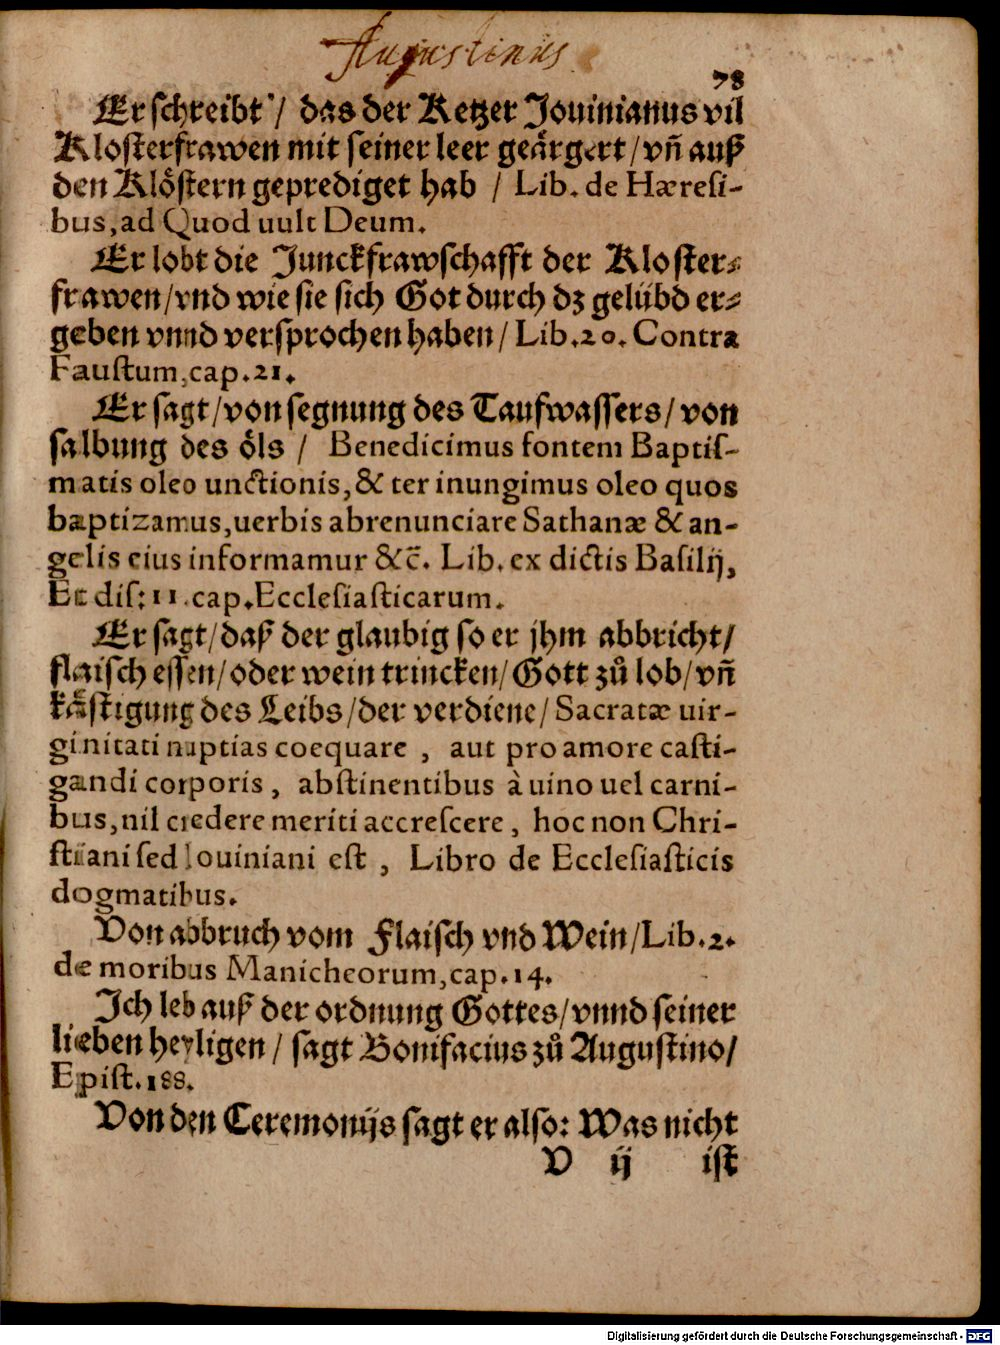 Augustinus
78
Er schreibt / das der Ketzer Jouinianus vil
Klosterfrawen mit seiner leer geärgert / vñ auß
den Klöstern geprediget hab / Lib. de Hæresi-
bus, ad Quod uult Deum.
Er lobt die Junckfrawschafft der Kloster-
frawen / vnd wie sie sich Got durch dz gelübd er-
geben vnnd versprochen haben / Lib. 20. Contra
Faustum, cap. 21.
Er sagt / von segnung des Taufwassers / von
salbung des öls / Benedicimus fontem Baptis-
matis oleo unctionis, & ter inungimus oleo quos
baptizamus, uerbis abrenunciare Sathanæ & an-
gelis eius informamur &c̄. Lib. ex dictis Basilij,
Et dis: 11. cap. Ecclesiasticarum.
Er sagt / daß der glaubig so er jhm abbricht /
flaisch essen / oder wein trincken / Gott zů lob / vñ
kästigung des Leibs / der verdiene / Sacratæ uir-
ginitati nuptias coequare, aut pro amore casti-
gandi corporis, abstinentibus à uino uel carni-
bus, nil credere meriti accrescere, hoc non Chri-
stiani sed Iouiniani est, Libro de Ecclesiasticis
dogmatibus.
Von abbruch vom Flaisch vnd Wein / Lib. 2.
de moribus Manicheorum, cap. 14.
Ich leb auß der ordnung Gottes / vnnd seiner
lieben heyligen / sagt Bonifacius zů Augustino /
Epist. 188.
Von den Ceremonijs sagt er also: Was nicht
V ij ist
Digitalisierung gefördert durch die Deutsche Forschungsgemeinschaft - DFG